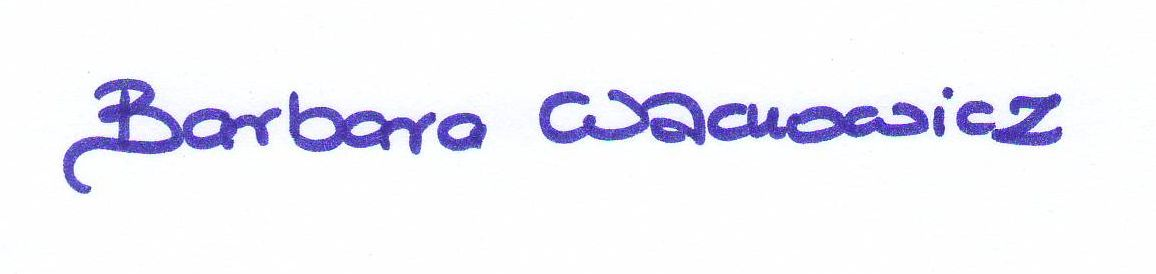 Barbara Wachowicz